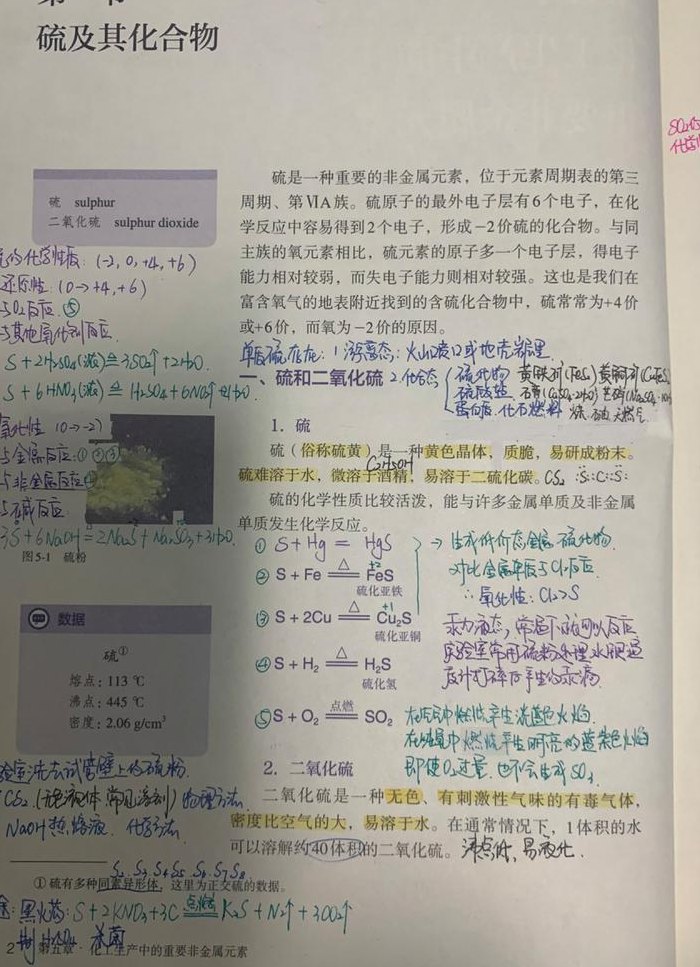 硫及其化合物
硫 sulphur
二氧化硫 sulphur dioxide
硫是一种重要的非金属元素，位于元素周期表的第三
周期、第ⅥA族。硫原子的最外电子层有6个电子，在化
学反应中容易得到2个电子，形成-2价硫的化合物。与同
主族的氧元素相比，硫元素的原子多一个电子层，得电子
能力相对较弱，而失电子能力则相对较强。这也是我们在
富含氧气的地表附近找到的含硫化合物中，硫常常为+4价
或+6价，而氧为-2价的原因。
的化学性质：(-2, 0, +4, +6)
还原性：(0→+4, +6)
与O2反应 ⑤
与其他氧化剂反应
S+2H2SO4(浓)≜3SO2↑+2H2O
S+6HNO3(浓)≜H2SO4+6NO2↑+2H2O
氧化性 (0→-2)
与金属反应：①②③
与非金属反应④
与碱反应
3S+6NaOH=2Na2S+Na2SO3+3H2O
图5-1 硫粉
单质硫存在：1 游离态：火山喷口或地壳岩层
一、硫和二氧化硫 2.化合态
硫化物 黄铁矿(FeS2) 黄铜矿(CuFeS2
硫酸盐 石膏(CaSO4·2H2O) 芒硝(Na2SO4·10H
蛋白质、化石燃料 煤、石油、天然气
1. 硫
硫（俗称硫黄）是一种黄色晶体，质脆，易研成粉末。
C2H5OH
硫难溶于水，微溶于酒精，易溶于二硫化碳。CS2 :S::C::S:
硫的化学性质比较活泼，能与许多金属单质及非金属
单质发生化学反应。
① S+Hg = HgS
→ 生成低价态金属硫化物
② S + Fe △ FeS +2
硫化亚铁
对比金属单质与Cl2反应
∴氧化性：Cl2>S
③ S + 2Cu △ Cu2S +1
硫化亚铜
汞为液态，常温下就可以反应
实验室常用硫粉处理水银温
度计打碎后产生的汞滴
④ S + H2 △ H2S
硫化氢
⑤ S + O2 点燃 SO2
在空气中燃烧产生淡蓝色火焰
在纯氧中燃烧产生明亮的蓝紫色火焰
即使O2过量，也不会生成SO3
数据
硫①
熔点：113 ℃
沸点：445 ℃
密度：2.06 g/cm3
验室洗去试管壁上的硫粉
CS2 (无色液体 常见溶剂) 物理方法
NaOH热溶液 化学方法
2. 二氧化硫
二氧化硫是一种无色、有刺激性气味的有毒气体，
密度比空气的大，易溶于水。在通常情况下，1体积的水
可以溶解约40体积的二氧化硫。沸点低，易液化.
S2 S3 S4 S5 S6 S7 S8
① 硫有多种同素异形体，这里为正交硫的数据。
途：黑火药：S+2KNO3+3C 点燃 K2S+N2↑+3CO2↑
制H2SO4 杀菌
2 第五章 化工生产中的重要非金属元素